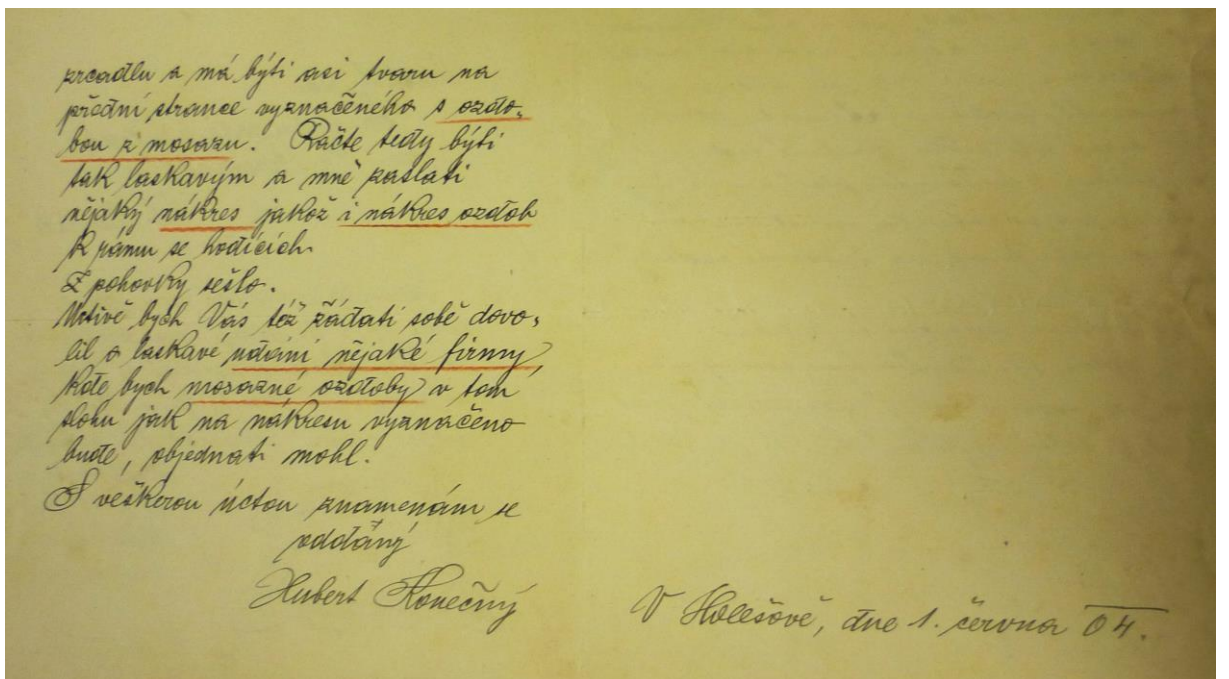 zrcadlu a má býti asi tvaru na
přední strance vyznačeného s ozdo-
bou z mosazu. Račte tedy býti
tak laskavým a mně zaslati
nějaký nákres jakož i nákres ozdob
k rámu se hodících.
Z pohovky sešlo.
Uctivě bych Vás též žádati sobě dovo-
lil o laskavé udání nějaké firmy,
kde bych mosazné ozdoby v tom
slohu jak na nákresu vyznačeno
bude, objednati mohl.
S veškerou úctou znamenám se
oddaný
Hubert Konečný
V Holešově, dne 1. června 04.